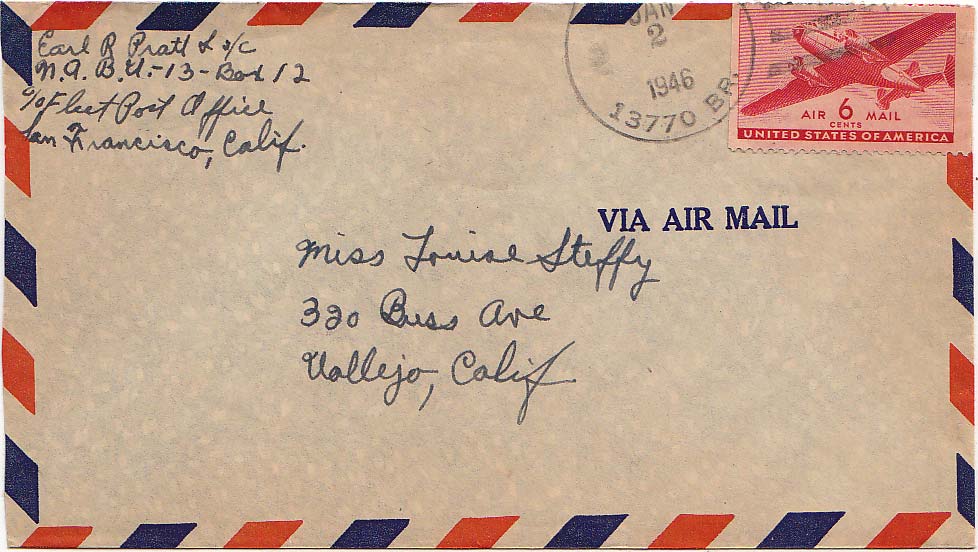 Earl R Pratt S 1/c
N.A.B.U.-13-Box 12
c/o Fleet Post Office
San Francisco, Calif.
JAN
2
1946
13770 BR
AIR 6 MAIL
CENTS
UNITED STATES OF AMERICA
VIA AIR MAIL
Miss Louise Steffy
330 Buss Ave
Vallejo, Calif